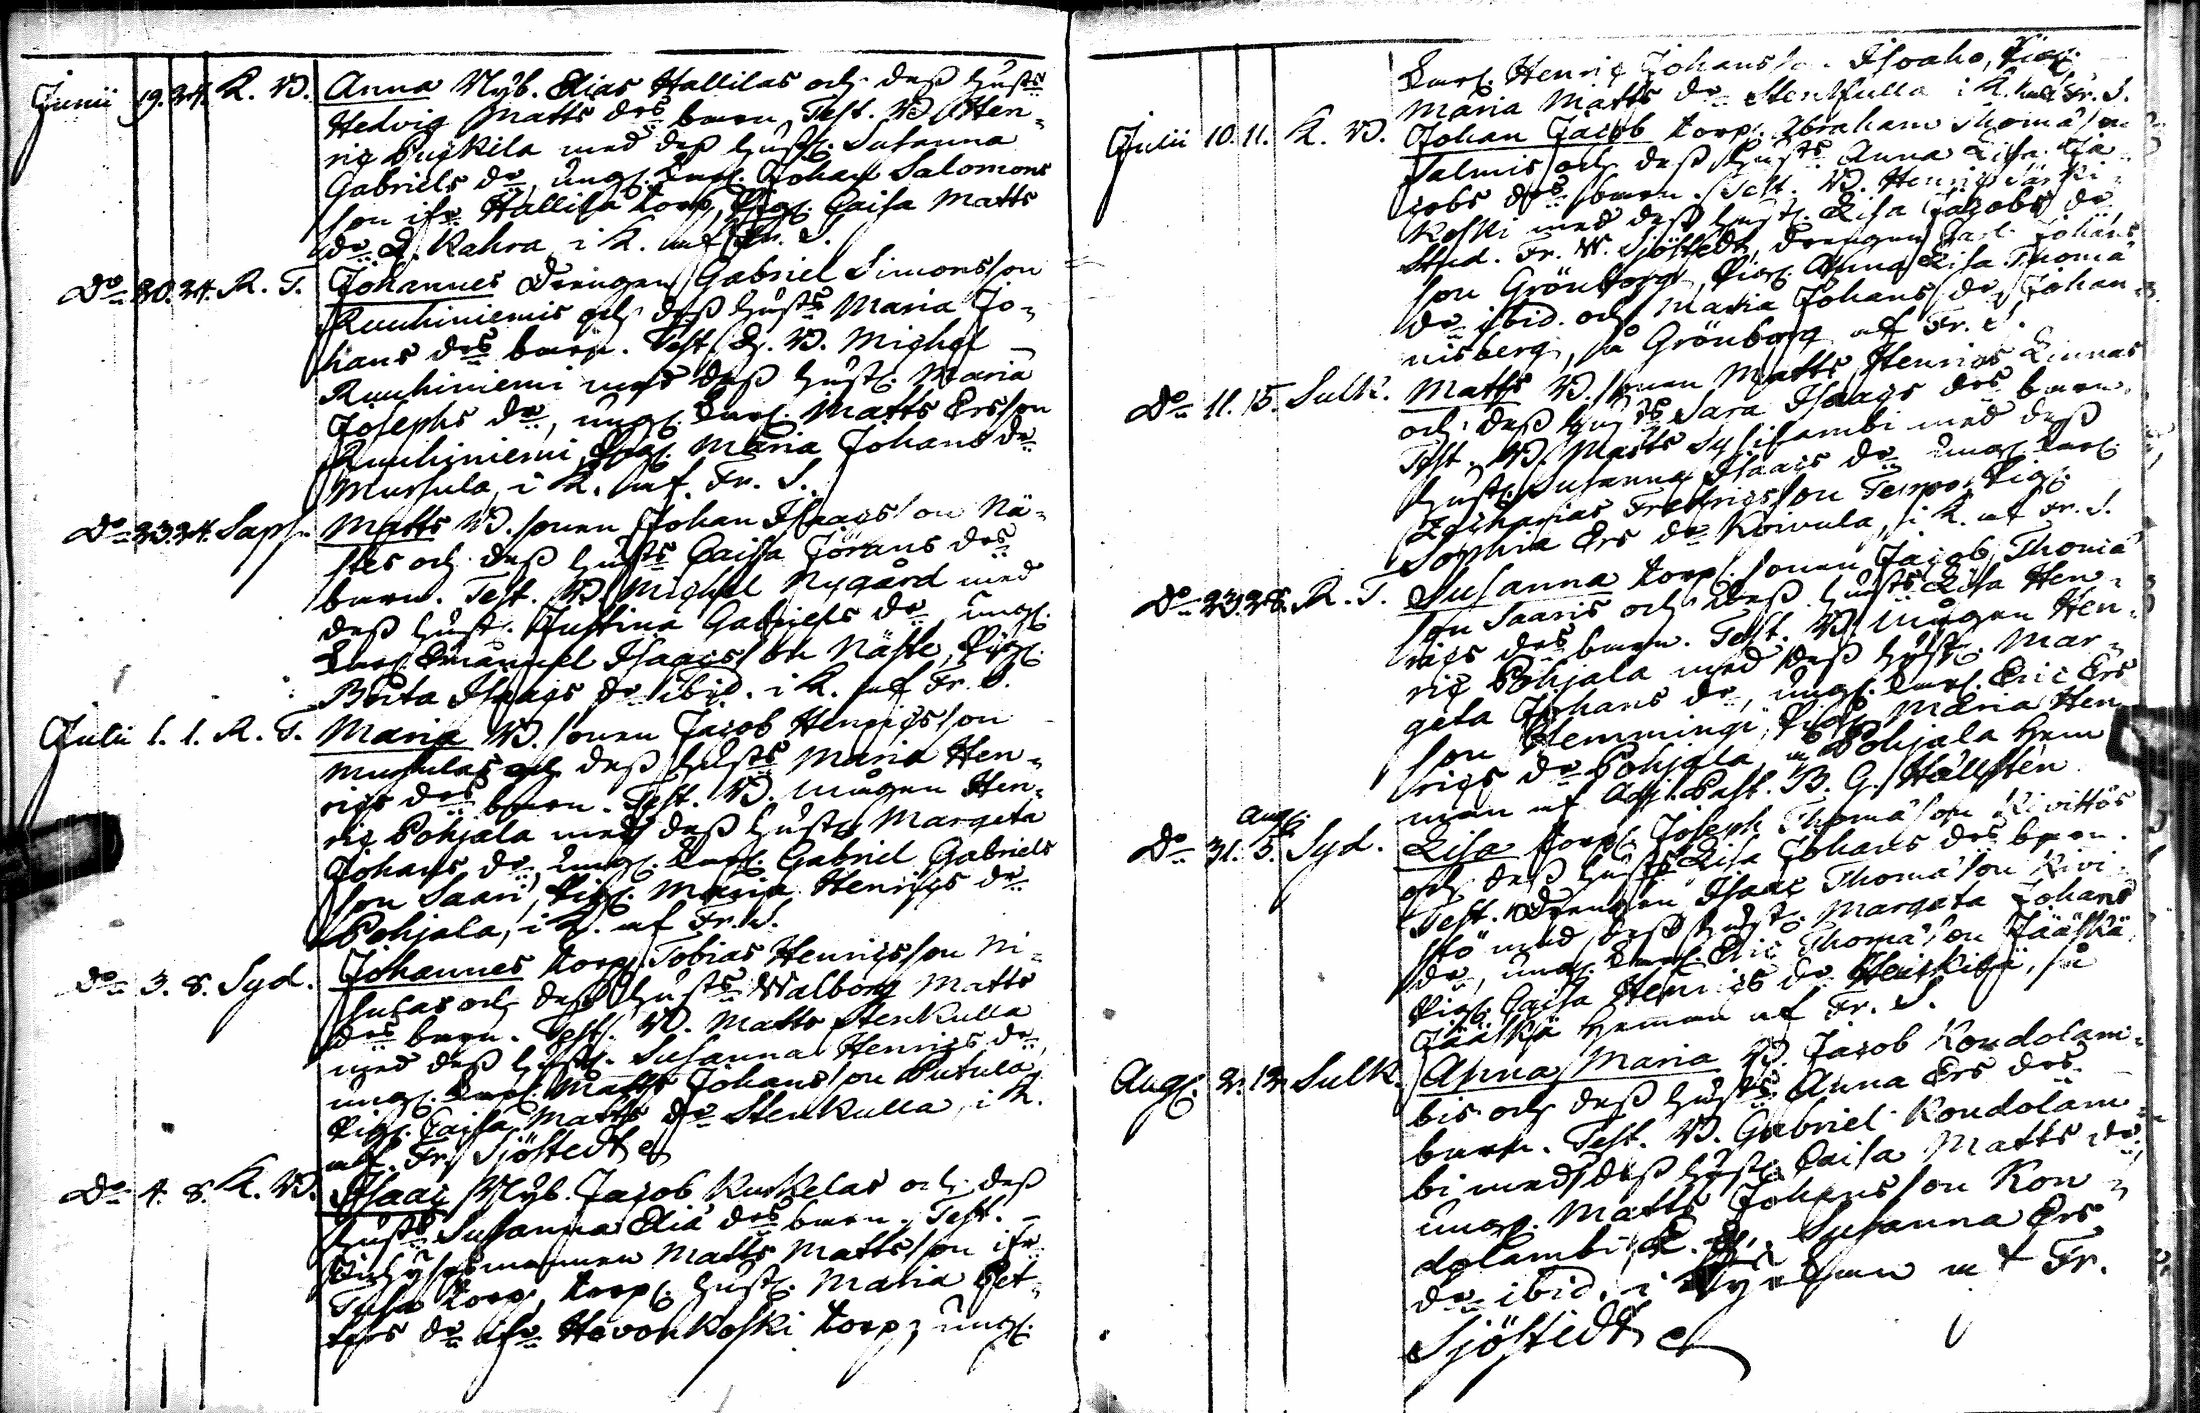 Junii 19. 24. K. B. Anna Nyb. Elias Hallilas och dess hust:s
Hedvig Matts d:rs barn, Test. B. Hen-
ric Puskila med dess hust. Susanna
Gabriels d:r, ung. Karl. Johan Salomons
son ifr. Hallila torp, Pig. Caisa Matts
d:r L. Kahra, i K. af Fr. S.
D:o 20. 24. R. T. Johannes Drengen Gabriel Simonsson
Ruuhiniemis och dess hust:s Maria Jo-
hans d:rs barn. Test. B. Michel
Ruuhiniemi med dess hust. Maria
Josephs d:r, ung. Karl. Matts Ersson
Ruuhiniemi, Pig. Maria Johans d:r
Mursula, i K. af Fr. S.
D:o 23. 24. Saps. Matts B. sonen Johan Isaacsson Nä-
stes och dess hust:s Caisa Jörans d:rs
barn. Test. B. Michel Nygård med
dess hust. Justina Gabriels d:r, ung.
Karl. Emanuel Isaacsson Näste, Pig.
Brita Isaacs d:r ibid. i K. af Fr. S.
Julii 1. 1. R. T. Maria B. sonen Jacob Henricsson
Mursulas och dess hust:s Maria Hen-
rics d:rs barn. Test. B. mågen Hen-
ric Pohjala med dess hust. Margeta
Johans d:r, ung. Karl. Gabriel Gabriels
son Saari, Pig. Maria Henrics d:r
Pohjala, i K. af Fr. S.
D:o 3. 8. Syd. Johannes torp. Tobias Henricsson Ni-
sulas och dess hust:s Walborg Matts
d:rs barn. Test. B. Matts Stenkulla
med dess hust. Susanna Henrics d:r,
ung. Karl. Matts Johansson Putula,
Pig. Caisa Matts d:r Stenkulla, i K.
af Fr. Sjöstedt
D:o 4. 8. K. B. Isaac Nyb. Jacob Kuskelas och dess
hust:s Susanna Eliä d:rs barn. Test.
Matts Mattsson ifr.
torp, torp. hust. Maria Pet-
ters d:r ifr. Havonkoski torp, ung.
Karl. Henric Johansson Isoaho, Pig.
Maria Matts d:r Stenkulla i K. af Fr. S.
Julii 10. 11. K. B. Johan Jacob torp. Abraham Thomäson
Salmis och dess hust:s Anna Lisa Ja-
cobs d:rs barn. Test. B. Henric Särki-
koski med dess hust. Lisa Jacobs d:r
Stud. Fr. W. Sjöstedt, Drengen Carl Johans
son Grönborg, Pig. Anna Lisa Thomä
d:r ibid. och Maria Johans d:r Johan-
nisberg, på Grönborg af Fr. S.
D:o 11. 15. Sulk. Matts B. sonen Matts Henrics Linnas
och dess hust:s Sara Isaacs d:rs barn.
Test. B. Matts Sysilambi med dess
hust. Susanna Isaacs d:r ung. Karl.
Zacharias Fredricsson Tempo, Pig.
Sophia Ers d:r Koivula, i K. af Fr. S.
D:o 23. 28. R. T. Susanna torp. sonen Jacob Thomä
son Saaris och dess hust:s Lisa Hen-
rics d:rs barn. Test. B. mågen Hen-
ric Pohjala med dess hust. Mar-
geta Johans d:r, ung. Karl. Eric Ers
son Hemmingi, Pig. Maria Hen-
rics d:r Pohjala, på Pohjala hem
man af Adj. Past. B. G. Hällstén
D:o 31. Aug. 5. Syd. Lisa torp. Joseph Thomäson Kivistös
och dess hust:s Lisa Johans d:rs barn.
Test. Drengen Isaac Thomäson Kivi-
stö med dess hust. Margata Johans
d:r, ung. Karl. Eric Thomäson Jääskä
Pig. Caisa Henrics d:r Heiskilä, på
Jääskä Hemman af Fr. S.
Aug. 2. 12. Sulk. Anna Maria B. Jacob Kondolam-
bis och dess hust:s Anna Ers d:rs
barn. Test. B. Gabriel Kondolam-
bi med dess hust. Caisa Matts d:r,
ung. Matts Johansson Kon-
dolambi, Susanna Ers
d:r ibid. i Kyrkan af Fr.
Sjöstedt